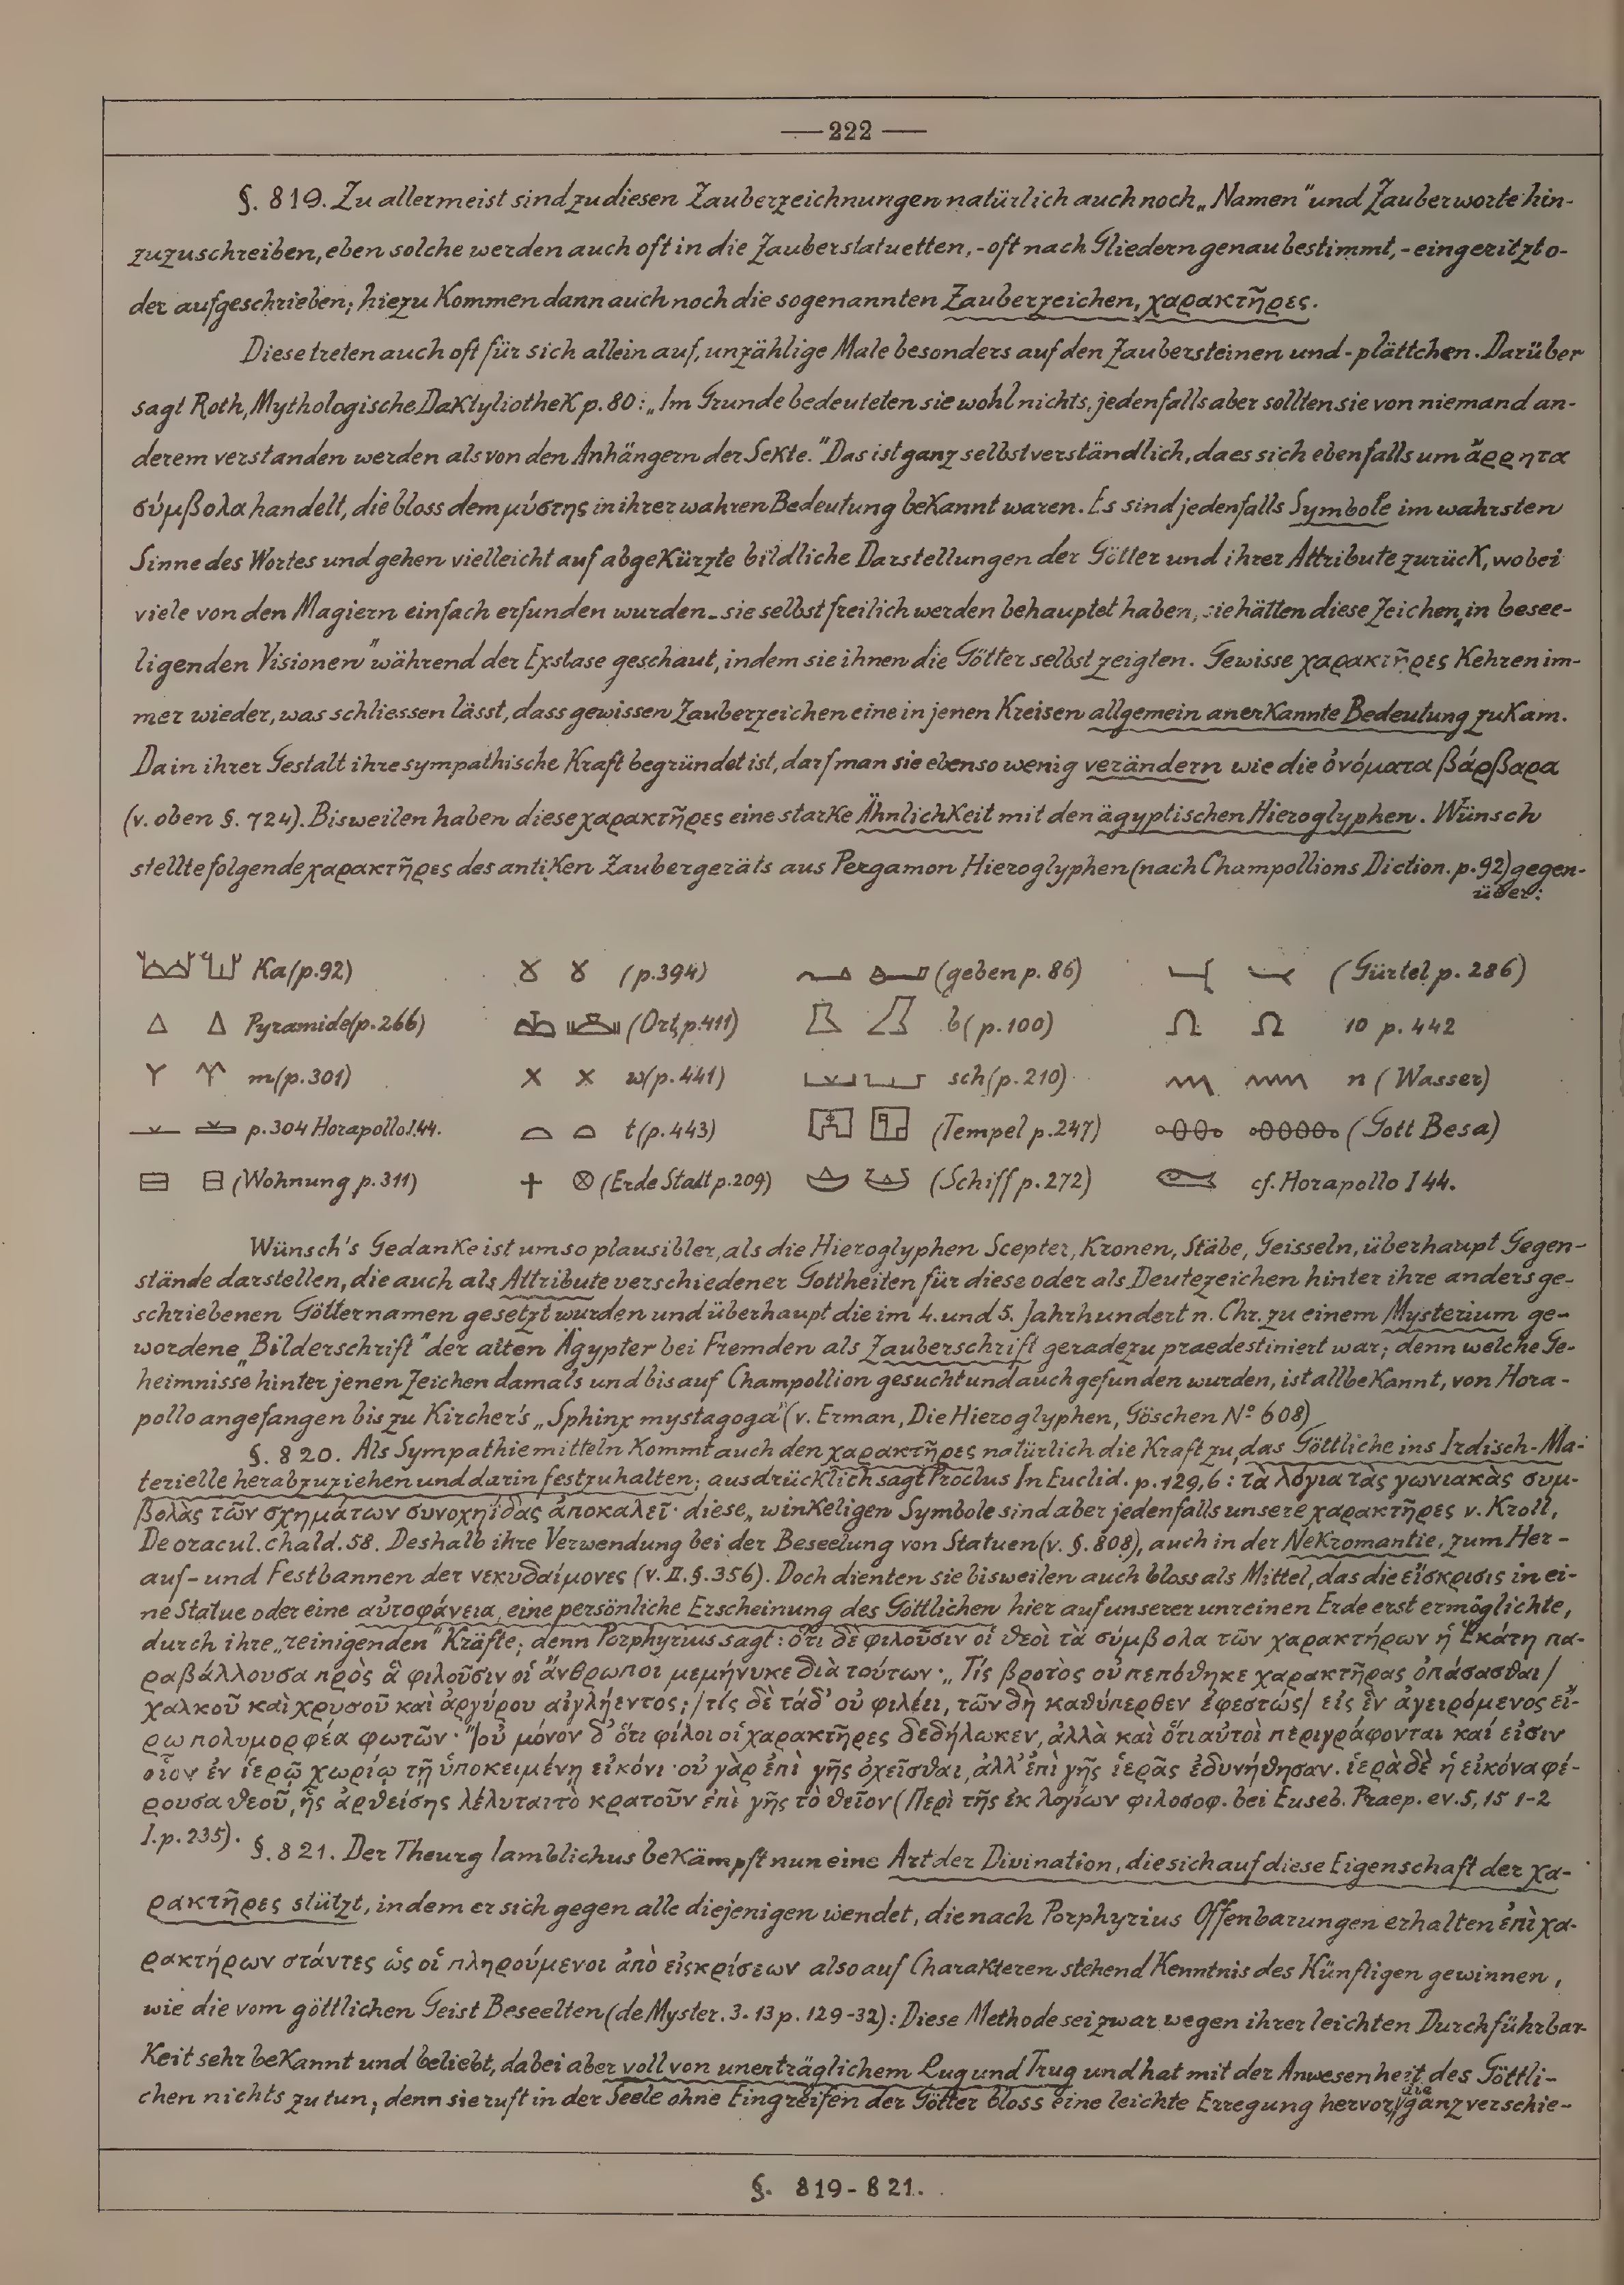 — 222 —
§. 819. Zu allermeist sind zu diesen Zauberzeichnungen natürlich auch noch „Namen" und Zauberworte hin-
zuzuschreiben, eben solche werden auch oft in die Zauberstatuetten, - oft nach Gliedern genau bestimmt, - eingeritzt o-
der aufgeschrieben; hiezu kommen dann auch noch die sogenannten Zauberzeichen, χαρακτῆρες.
Diese treten auch oft für sich allein auf, unzählige Male besonders auf den Zaubersteinen und -plättchen. Darüber
sagt Roth, Mythologische Daktyliothek p. 80: „Im Grunde bedeuteten sie wohl nichts, jedenfalls aber sollten sie von niemand an-
derem verstanden werden als von den Anhängern der Sekte." Das ist ganz selbstverständlich, da es sich ebenfalls um ἄρρητα
σύμβολα handelt, die bloss dem μύστης in ihrer wahren Bedeutung bekannt waren. Es sind jedenfalls Symbole im wahrsten
Sinne des Wortes und gehen vielleicht auf abgekürzte bildliche Darstellungen der Götter und ihrer Attribute zurück, wobei
viele von den Magiern einfach erfunden wurden - sie selbst freilich werden behauptet haben, sie hätten diese Zeichen „in besee-
ligenden Visionen" während der Exstase geschaut, indem sie ihnen die Götter selbst zeigten. Gewisse χαρακτῆρες kehren im-
mer wieder, was schliessen lässt, dass gewissen Zauberzeichen eine in jenen Kreisen allgemein anerkannte Bedeutung zukam.
Da in ihrer Gestalt ihre sympathische Kraft begründet ist, darf man sie ebenso wenig verändern wie die ὀνόματα βάρβαρα
(v. oben §. 724). Bisweilen haben diese χαρακτῆρες eine starke Ähnlichkeit mit den ägyptischen Hieroglyphen. Wünsch
stellte folgende χαρακτῆρες des antiken Zaubergeräts aus Pergamon Hieroglyphen (nach Champollions Diction. p. 92) gegen-
über:
Ka (p. 92) (p. 394) (geben p. 86) (Gürtel p. 286)
Pyramide (p. 266) (Ort, p. 411) b (p. 100) 10 p. 442
m (p. 301) w (p. 441) sch (p. 210) n (Wasser)
p. 304 Horapollo I.44. t (p. 443) (Tempel p. 247) (Gott Besa)
(Wohnung p. 311) (Erde Stadt p. 209) (Schiff p. 272) cf. Horapollo I 44.
Wünsch's Gedanke ist umso plausibler, als die Hieroglyphen Scepter, Kronen, Stäbe, Geisseln, überhaupt Gegen-
stände darstellen, die auch als Attribute verschiedener Gottheiten für diese oder als Deutezeichen hinter ihre anders ge-
schriebenen Götternamen gesetzt wurden und überhaupt die im 4. und 5. Jahrhundert n. Chr. zu einem Mysterium ge-
wordene „Bilderschrift" der alten Ägypter bei Fremden als Zauberschrift geradezu praedestiniert war; denn welche Ge-
heimnisse hinter jenen Zeichen damals und bis auf Champollion gesucht und auch gefunden wurden, ist allbekannt, von Hora-
pollo angefangen bis zu Kircher's „Sphinx mystagoga" (v. Erman, Die Hieroglyphen, Göschen Nº 608)
§. 820. Als Sympathiemitteln kommt auch den χαρακτῆρες natürlich die Kraft zu, das Göttliche ins Irdisch-Ma-
terielle herabzuziehen und darin festzuhalten; ausdrücklich sagt Proclus In Euclid. p. 129,6: τὰ λόγια τὰς γωνιακὰς συμ-
βολὰς τῶν σχημάτων συνοχηΐδας ἀποκαλεῖ· diese „winkeligen Symbole sind aber jedenfalls unsere χαρακτῆρες v. Kroll,
De oracul. chald. 58. Deshalb ihre Verwendung bei der Beseelung von Statuen (v. §. 808), auch in der Nekromantie, zum Her-
auf- und Festbannen der νεκυδαίμονες (v. II. §. 356). Doch dienten sie bisweilen auch bloss als Mittel, das die εἴσκρισις in ei-
ne Statue oder eine αὐτοφάνεια, eine persönliche Erscheinung des Göttlichen hier auf unserer unreinen Erde erst ermöglichte,
durch ihre „reinigenden" Kräfte; denn Porphyrius sagt: ὅτι δὲ φιλοῦσιν οἱ θεοὶ τὰ σύμβολα τῶν χαρακτήρων ἡ Ἑκάτη πα-
ραβάλλουσα πρὸς ἃ φιλοῦσιν οἱ ἄνθρωποι μεμήνυκε διὰ τούτων· „Τίς βροτὸς οὐ πεπόθηκε χαρακτῆρας ὀπάσασθαι/
χαλκοῦ καὶ χρυσοῦ καὶ ἀργύρου αἰγλήεντος;/τίς δὲ τάδ' οὐ φιλέει, τῶν δὴ καθύπερθεν ἐφεστὼς/ εἰς ἓν ἀγειρόμενος εἴ-
ρω πολυμορφέα φωτῶν·"/οὐ μόνον δ' ὅτι φίλοι οἱ χαρακτῆρες δεδήλωκεν, ἀλλὰ καὶ ὅτι αὐτοὶ περιγράφονται καί εἰσιν
οἷον ἐν ἱερῷ χωρίῳ τῇ ὑποκειμένῃ εἰκόνι· οὐ γὰρ ἐπὶ γῆς ὀχεῖσθαι, ἀλλ' ἐπὶ γῆς ἱερᾶς ἐδυνήθησαν. ἱερὰ δὲ ἡ εἰκόνα φέ-
ρουσα θεοῦ, ἧς ἀρθείσης λέλυται τὸ κρατοῦν ἐπὶ γῆς τὸ θεῖον (Περὶ τῆς ἐκ λογίων φιλοσοφ. bei Euseb. Praep. ev. 5, 15 1-2
I. p. 235).
§. 821. Der Theurg Iamblichus bekämpft nun eine Art der Divination, die sich auf diese Eigenschaft der χα-
ρακτῆρες stützt, indem er sich gegen alle diejenigen wendet, die nach Porphyrius Offenbarungen erhalten ἐπὶ χα-
ρακτήρων στάντες ὡς οἱ πληρούμενοι ἀπὸ εἰςκρίσεων also auf Charakteren stehend Kenntnis des Künftigen gewinnen,
wie die vom göttlichen Geist Beseelten (de Myster. 3. 13 p. 129-32): Diese Methode sei zwar wegen ihrer leichten Durchführbar-
keit sehr bekannt und beliebt, dabei aber voll von unerträglichem Lug und Trug und hat mit der Anwesenheit des Göttli-
chen nichts zu tun; denn sie ruft in der Seele ohne Eingreifen der Götter bloss eine leichte Erregung hervor, die ganz verschie-
§. 819 - 821.